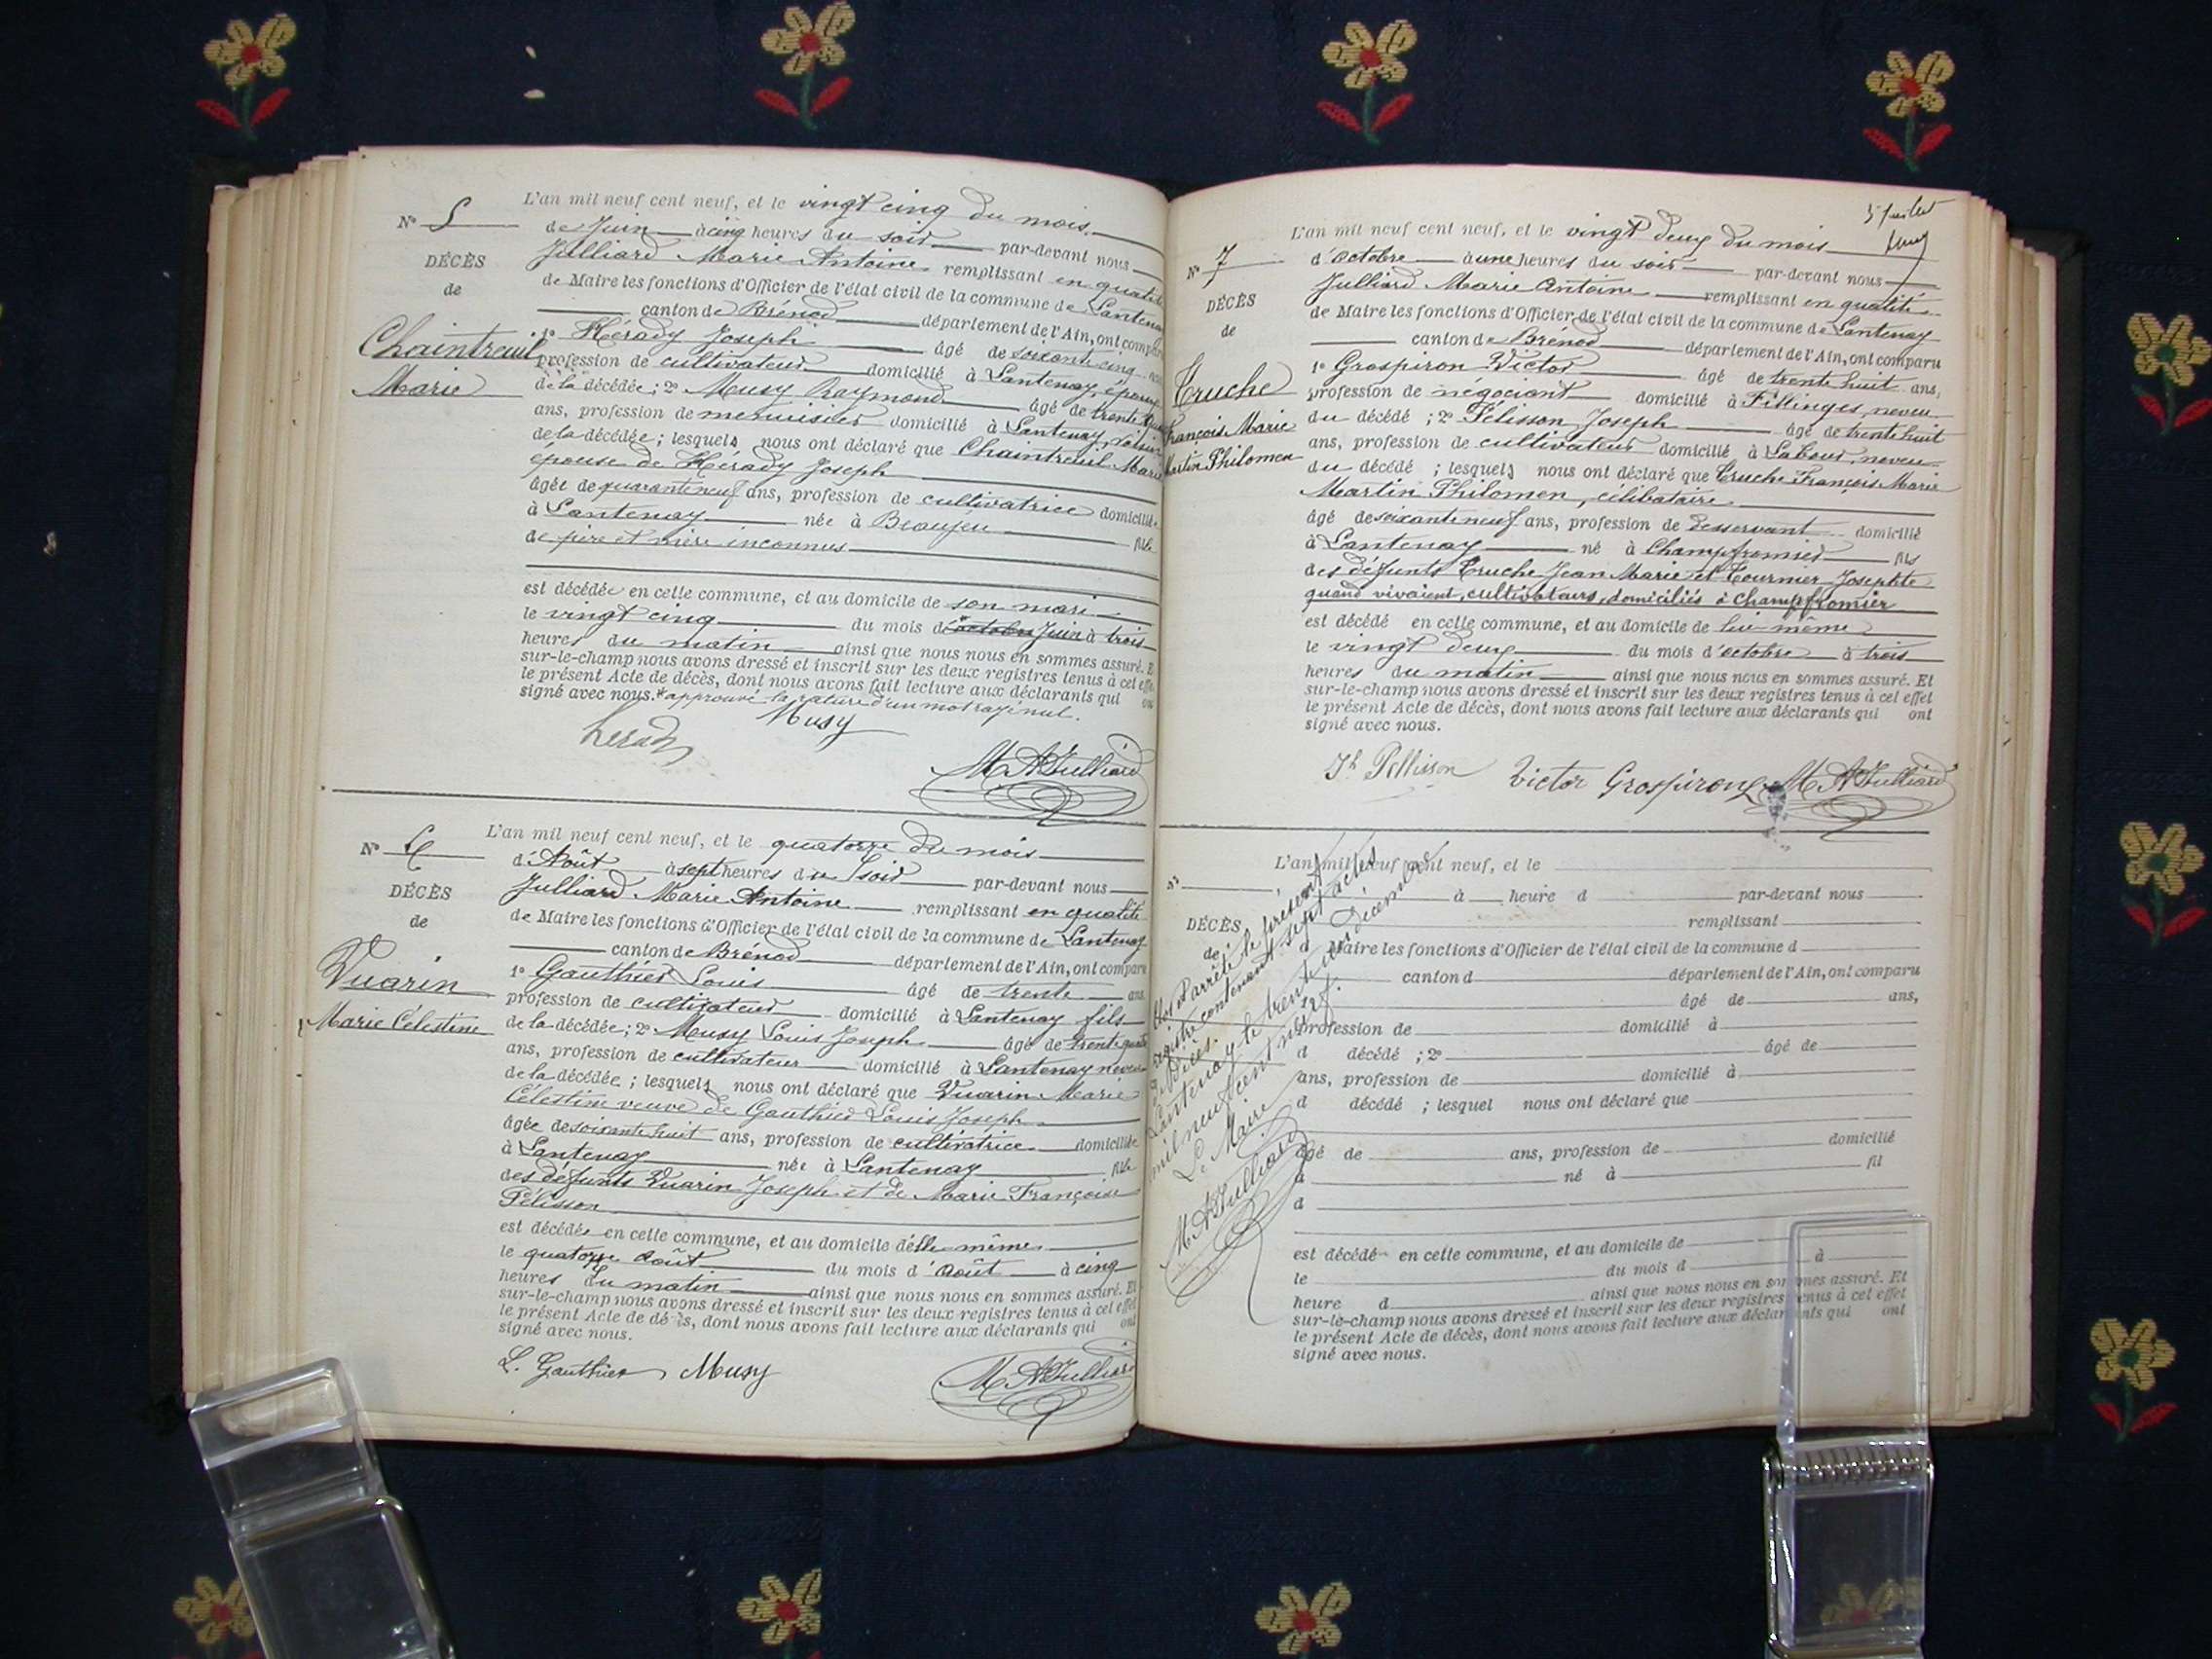 L'an mil neuf cent neuf, et le vingt cinq du mois
N° 5
de Juin à cinq heures du soir par-devant nous
DÉCÈS
Julliard Marie Antoine remplissant en qualité
de
de Maire les fonctions d'Officier de l'état civil de la commune de Lantenay
canton de Brénod département de l'Ain, ont comparu
Chaintreuil
1° Hérady Joseph âgé de soixante cinq
Marie
profession de cultivateur domicilié à Lantenay, époux
de la décédée ; 2° Musy Raymond âgé de trente
ans, profession de menuisier domicilié à Lantenay, voisin
de la décédée ; lesquels nous ont déclaré que Chaintreuil Marie
épouse de Hérady Joseph
âgée de quarante neuf ans, profession de cultivatrice domiciliée
à Lantenay née à Beaujeu fille
de père et mère inconnus
est décédée en cette commune, et au domicile de son mari
le vingt cinq du mois d'octobre Juin à trois
heures du matin ainsi que nous nous en sommes assuré. Et
sur-le-champ nous avons dressé et inscrit sur les deux registres tenus à cet effet
le présent Acte de décès, dont nous avons fait lecture aux déclarants qui ont
signé avec nous. * approuvé la rature d'un mot rayé nul.
Herady Musy
M A Julliard
L'an mil neuf cent neuf, et le quatorze du mois
N° 6
d'Août à sept heures du soir par-devant nous
DÉCÈS
Julliard Marie Antoine remplissant en qualité
de
de Maire les fonctions d'Officier de l'état civil de la commune de Lantenay
canton de Brénod département de l'Ain, ont comparu
Vuarin
1° Gauthier Louis âgé de trente ans
Marie Célestine
profession de cultivateur domicilié à Lantenay fils
de la décédée ; 2° Musy Louis Joseph âgé de trente quatre
ans, profession de cultivateur domicilié à Lantenay neveu
de la décédée ; lesquels nous ont déclaré que Vuarin Marie
Célestine veuve de Gauthier Louis Joseph
âgée de soixante huit ans, profession de cultivatrice domiciliée
à Lantenay née à Lantenay fille
des défunts Vuarin Joseph et de Marie Françoise
Pélisson
est décédée en cette commune, et au domicile d'elle même
le quatorze Août du mois d'Août à cinq
heures du matin ainsi que nous nous en sommes assuré. Et
sur-le-champ nous avons dressé et inscrit sur les deux registres tenus à cet effet
le présent Acte de décès, dont nous avons fait lecture aux déclarants qui ont
signé avec nous.
L. Gauthier Musy M A Julliard
5 Juillet
L'an mil neuf cent neuf, et le vingt deux du mois
N° 7
d'Octobre à une heures du soir par-devant nous
DÉCÈS
Julliard Marie Antoine remplissant en qualité
de
de Maire les fonctions d'Officier de l'état civil de la commune de Lantenay
canton de Brénod département de l'Ain, ont comparu
Truche
François Marie
Martin Philomen
1° Grospiron Victor âgé de trente huit ans,
profession de négociant domicilié à Fillinges, neveu
du décédé ; 2° Pélisson Joseph âgé de trente huit
ans, profession de cultivateur domicilié à Labour, neveu
du décédé ; lesquels nous ont déclaré que Truche François Marie
Martin Philomen, célibataire
âgé de soixante neuf ans, profession de desservant domicilié
à Lantenay né à Champfromier fils
des défunts Truche Jean Marie et Tournier Josephte
quand vivaient, cultivateurs, domiciliés à Champfromier
est décédé en cette commune, et au domicile de lui-même
le vingt deux du mois d'octobre à trois
heures du matin ainsi que nous nous en sommes assuré. Et
sur-le-champ nous avons dressé et inscrit sur les deux registres tenus à cet effet
le présent Acte de décès, dont nous avons fait lecture aux déclarants qui ont
signé avec nous.
Jh Pellisson Victor Grospiron M A Julliard
L'an mil neuf cent neuf, et le
N°
à heure d par-devant nous
DÉCÈS
remplissant
de
d Maire les fonctions d'Officier de l'état civil de la commune d
canton d département de l'Ain, ont comparu
âgé de ans,
profession de domicilié à
d décédé ; 2° âgé de
ans, profession de domicilié à
d décédé ; lesquel nous ont déclaré que
âgé de ans, profession de domicilié
à né à fil
d
est décédé en cette commune, et au domicile de
le du mois d à
heure d ainsi que nous nous en sommes assuré. Et
sur-le-champ nous avons dressé et inscrit sur les deux registres tenus à cet effet
le présent Acte de décès, dont nous avons fait lecture aux déclarants qui ont
signé avec nous.
Clos et arrêté le présent
registre contenant sept actes
de Décès.
Lantenay le trente un Décembre
mil neuf cent neuf.
Le Maire
M A Julliard